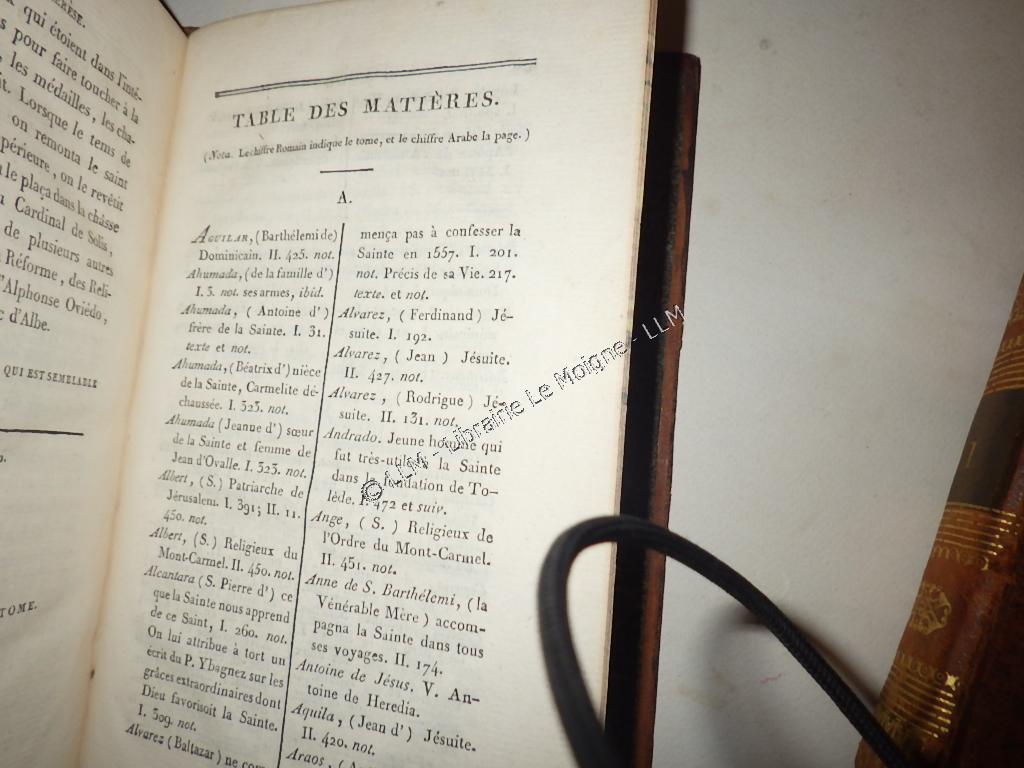 ÉRÈSE.
qui étoient dans l'inté-
pour faire toucher à la
les médailles, les cha-
it. Lorsque le tems de
on remonta le saint
périeure, on le revêtit
le plaça dans la châsse
Cardinal de Solis,
de plusieurs autres
Réforme, des Reli-
d'Alphonse Oviédo,
c d'Albe.
QUI EST SEMBLABLE
TOME.
TABLE DES MATIÈRES.
(Nota. Le chiffre Romain indique le tome, et le chiffre Arabe la page.)
A.
AGUILAR, (Barthélemi de)
Dominicain. II. 425. not.
Ahumada, (de la famille d')
I. 3. not. ses armes, ibid.
Ahumada, (Antoine d')
frère de la Sainte. I. 31.
texte et not.
Ahumada, (Béatrix d') nièce
de la Sainte, Carmelite dé-
chaussée. I. 323. not.
Ahumada (Jeanne d') sœur
de la Sainte et femme de
Jean d'Ovalle. I. 323. not.
Albert, (S.) Patriarche de
Jérusalem. I. 391; II. 11.
450. not.
Albert, (S.) Religieux du
Mont-Carmel. II. 450. not.
Alcantara (S. Pierre d') ce
que la Sainte nous apprend
de ce Saint, I. 260. not.
On lui attribue à tort un
écrit du P. Ybagnez sur les
grâces extraordinaires dont
Dieu favorisoit la Sainte.
I. 309. not.
Alvarez (Baltazar) ne com-
mença pas à confesser la
Sainte en 1557. I. 201.
not. Précis de sa Vie. 217.
texte. et not.
Alvarez, (Ferdinand) Jé-
suite. I. 192.
Alvarez, (Jean) Jésuite.
II. 427. not.
Alvarez, (Rodrigue) Jé-
suite. II. 131. not.
Andrado. Jeune homme qui
fut très-utile à la Sainte
dans la fondation de To-
lède. I. 472 et suiv.
Ange, (S.) Religieux de
l'Ordre du Mont-Carmel.
II. 451. not.
Anne de S. Barthélemi, (la
Vénérable Mère) accom-
pagna la Sainte dans tous
ses voyages. II. 174.
Antoine de Jésus. V. An-
toine de Heredia.
Aquila, (Jean d') Jésuite.
II. 420. not.
Araos,
©LLM - Librairie Le Moigne - LLM
I